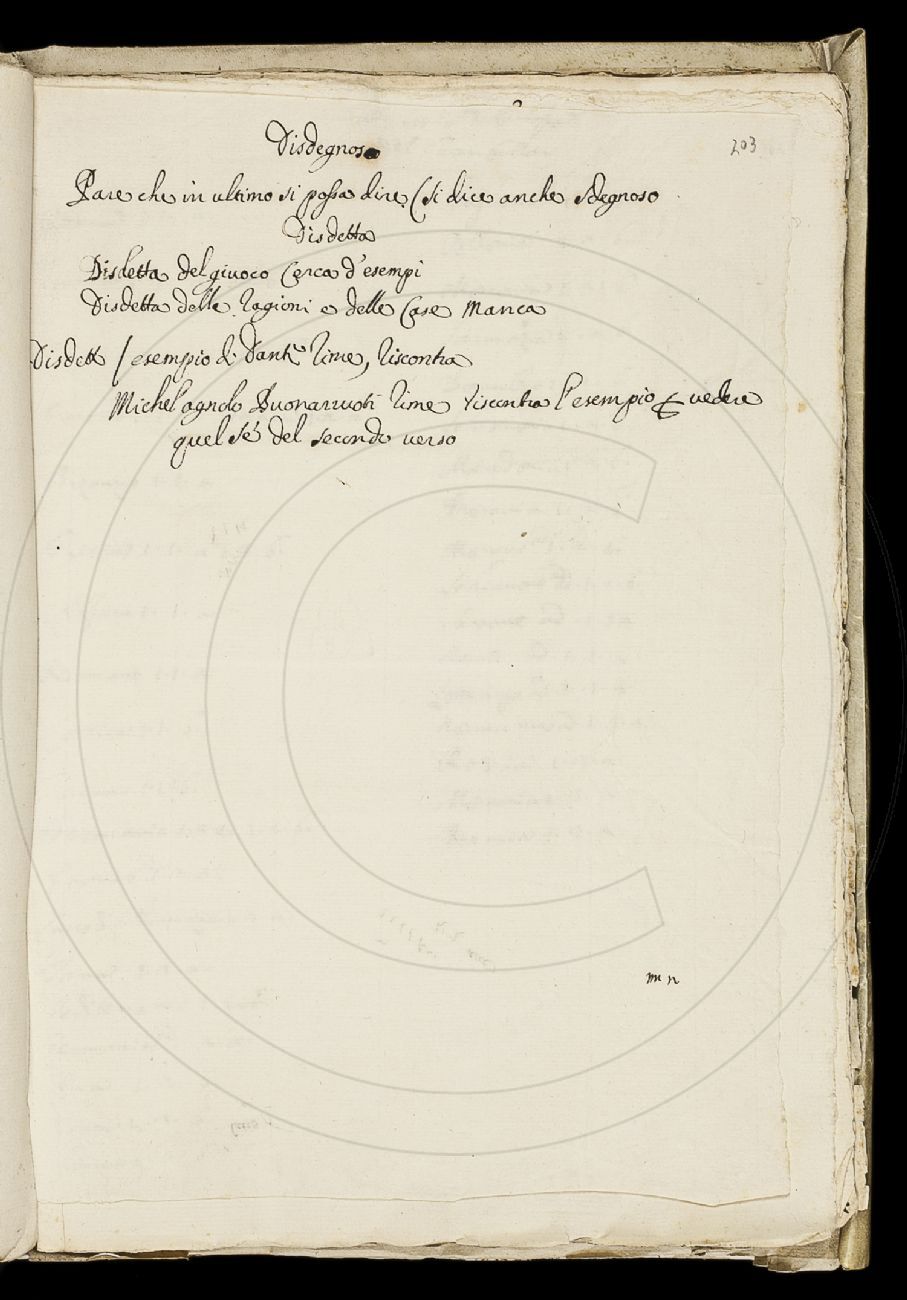 203
Disdegnoso
Pare che in ultimo si possa dire (si dice anche Sdegnoso
Disdetta
Disdetta del giuoco Cerca d'esempi
Disdetta delle ragioni e delle Case Manca
Disdett / esempio di Dante rime, riscontra
Michel agnolo Buonarruoti rime riscontra l'esempio p vedere
quel sé del secondo verso
m n